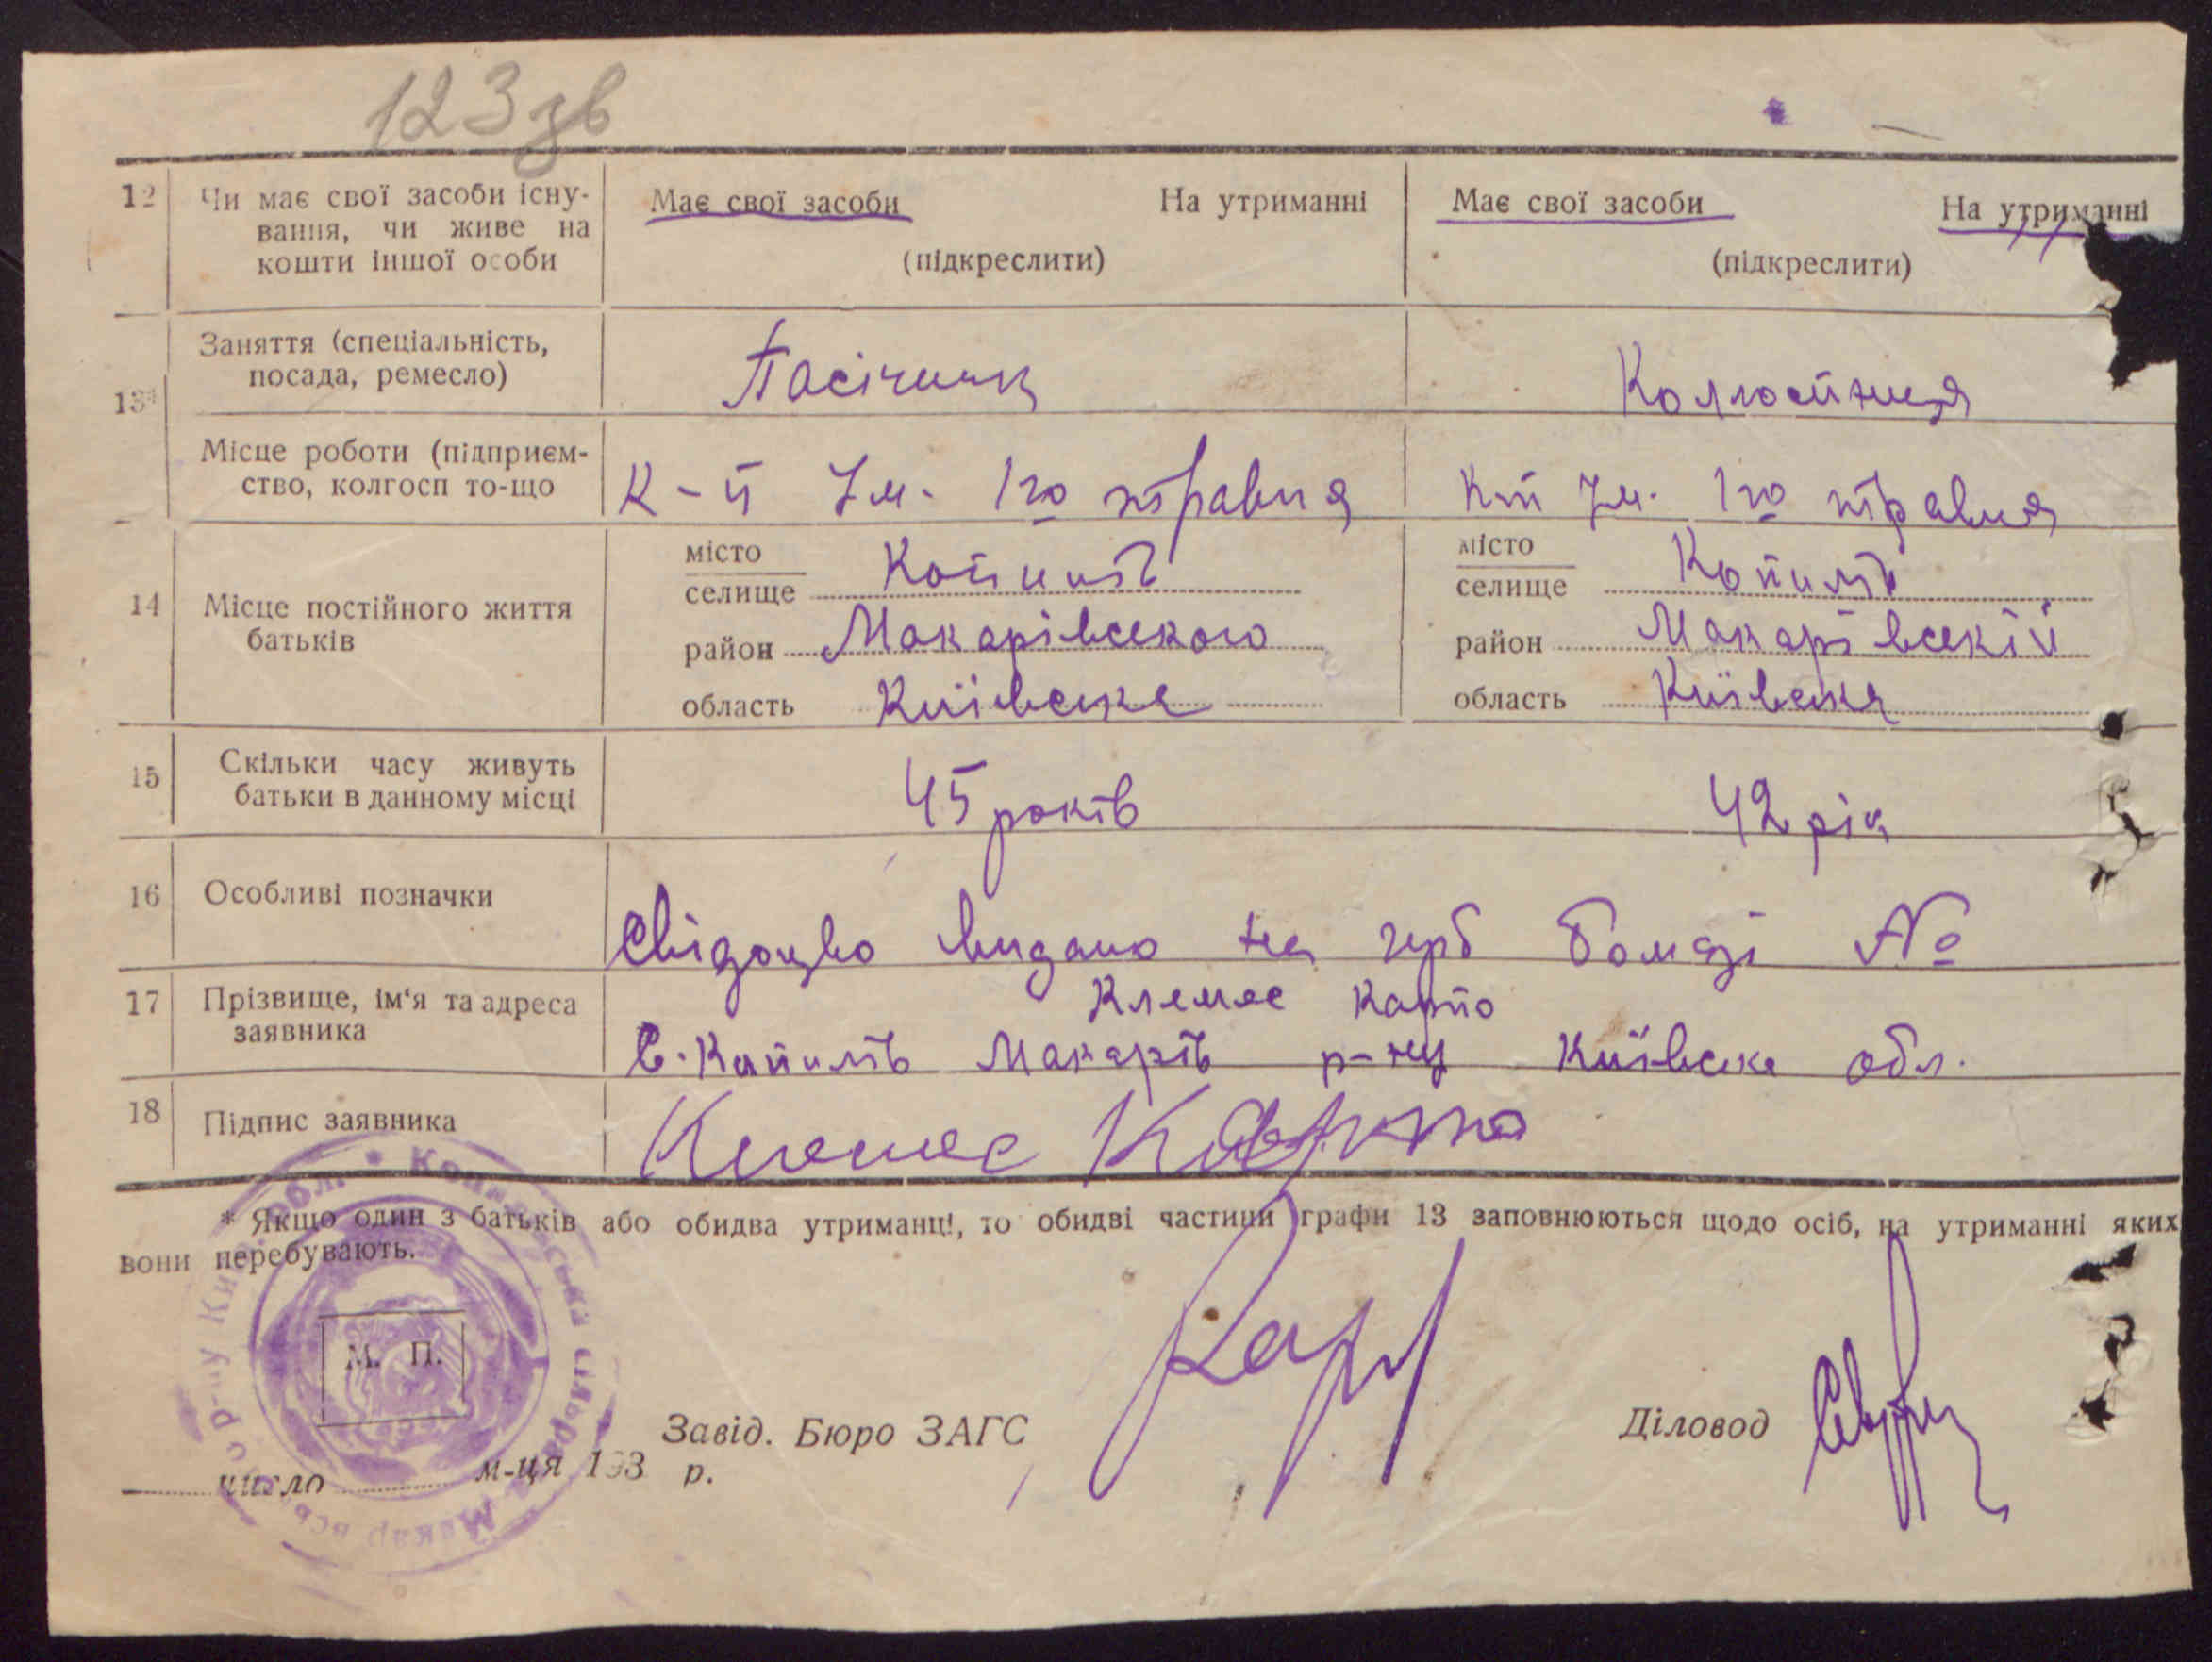 123 зв
12 Чи має свої засоби існу-
вання, чи живе на
кошти іншої особи
Має свої засоби На утриманні
(підкреслити)
Має свої засоби На утриманні
(підкреслити)
13* Заняття (спеціальність,
посада, ремесло)
Пасічник
Колгостниця
Місце роботи (підприєм-
ство, колгосп то-що
К-п Ім. 1го травня
Кт Ім. 1го травня
14 Місце постійного життя
батьків
місто
селище Копилів
район Макарівського
область Київська
місто
селище Копилів
район Макарівскій
область Київська
15 Скільки часу живуть
батьки в данному місці
45 років
42 рік
16 Особливі позначки
Свідоцво видано на герб бомазі №
17 Прізвище, ім‘я та адреса
заявника
Клемес Карпо
С. Копилів Макарів р-ну Київська обл.
18 Підпис заявника
Клемес Карпо
* Якщо один з батьків або обидва утриманці, то обидві частини графи 13 заповнюються щодо осіб, на утриманні яких
вони перебувають.
М. П.
Завід. Бюро ЗАГС
Діловод
число м-ця 193 р.